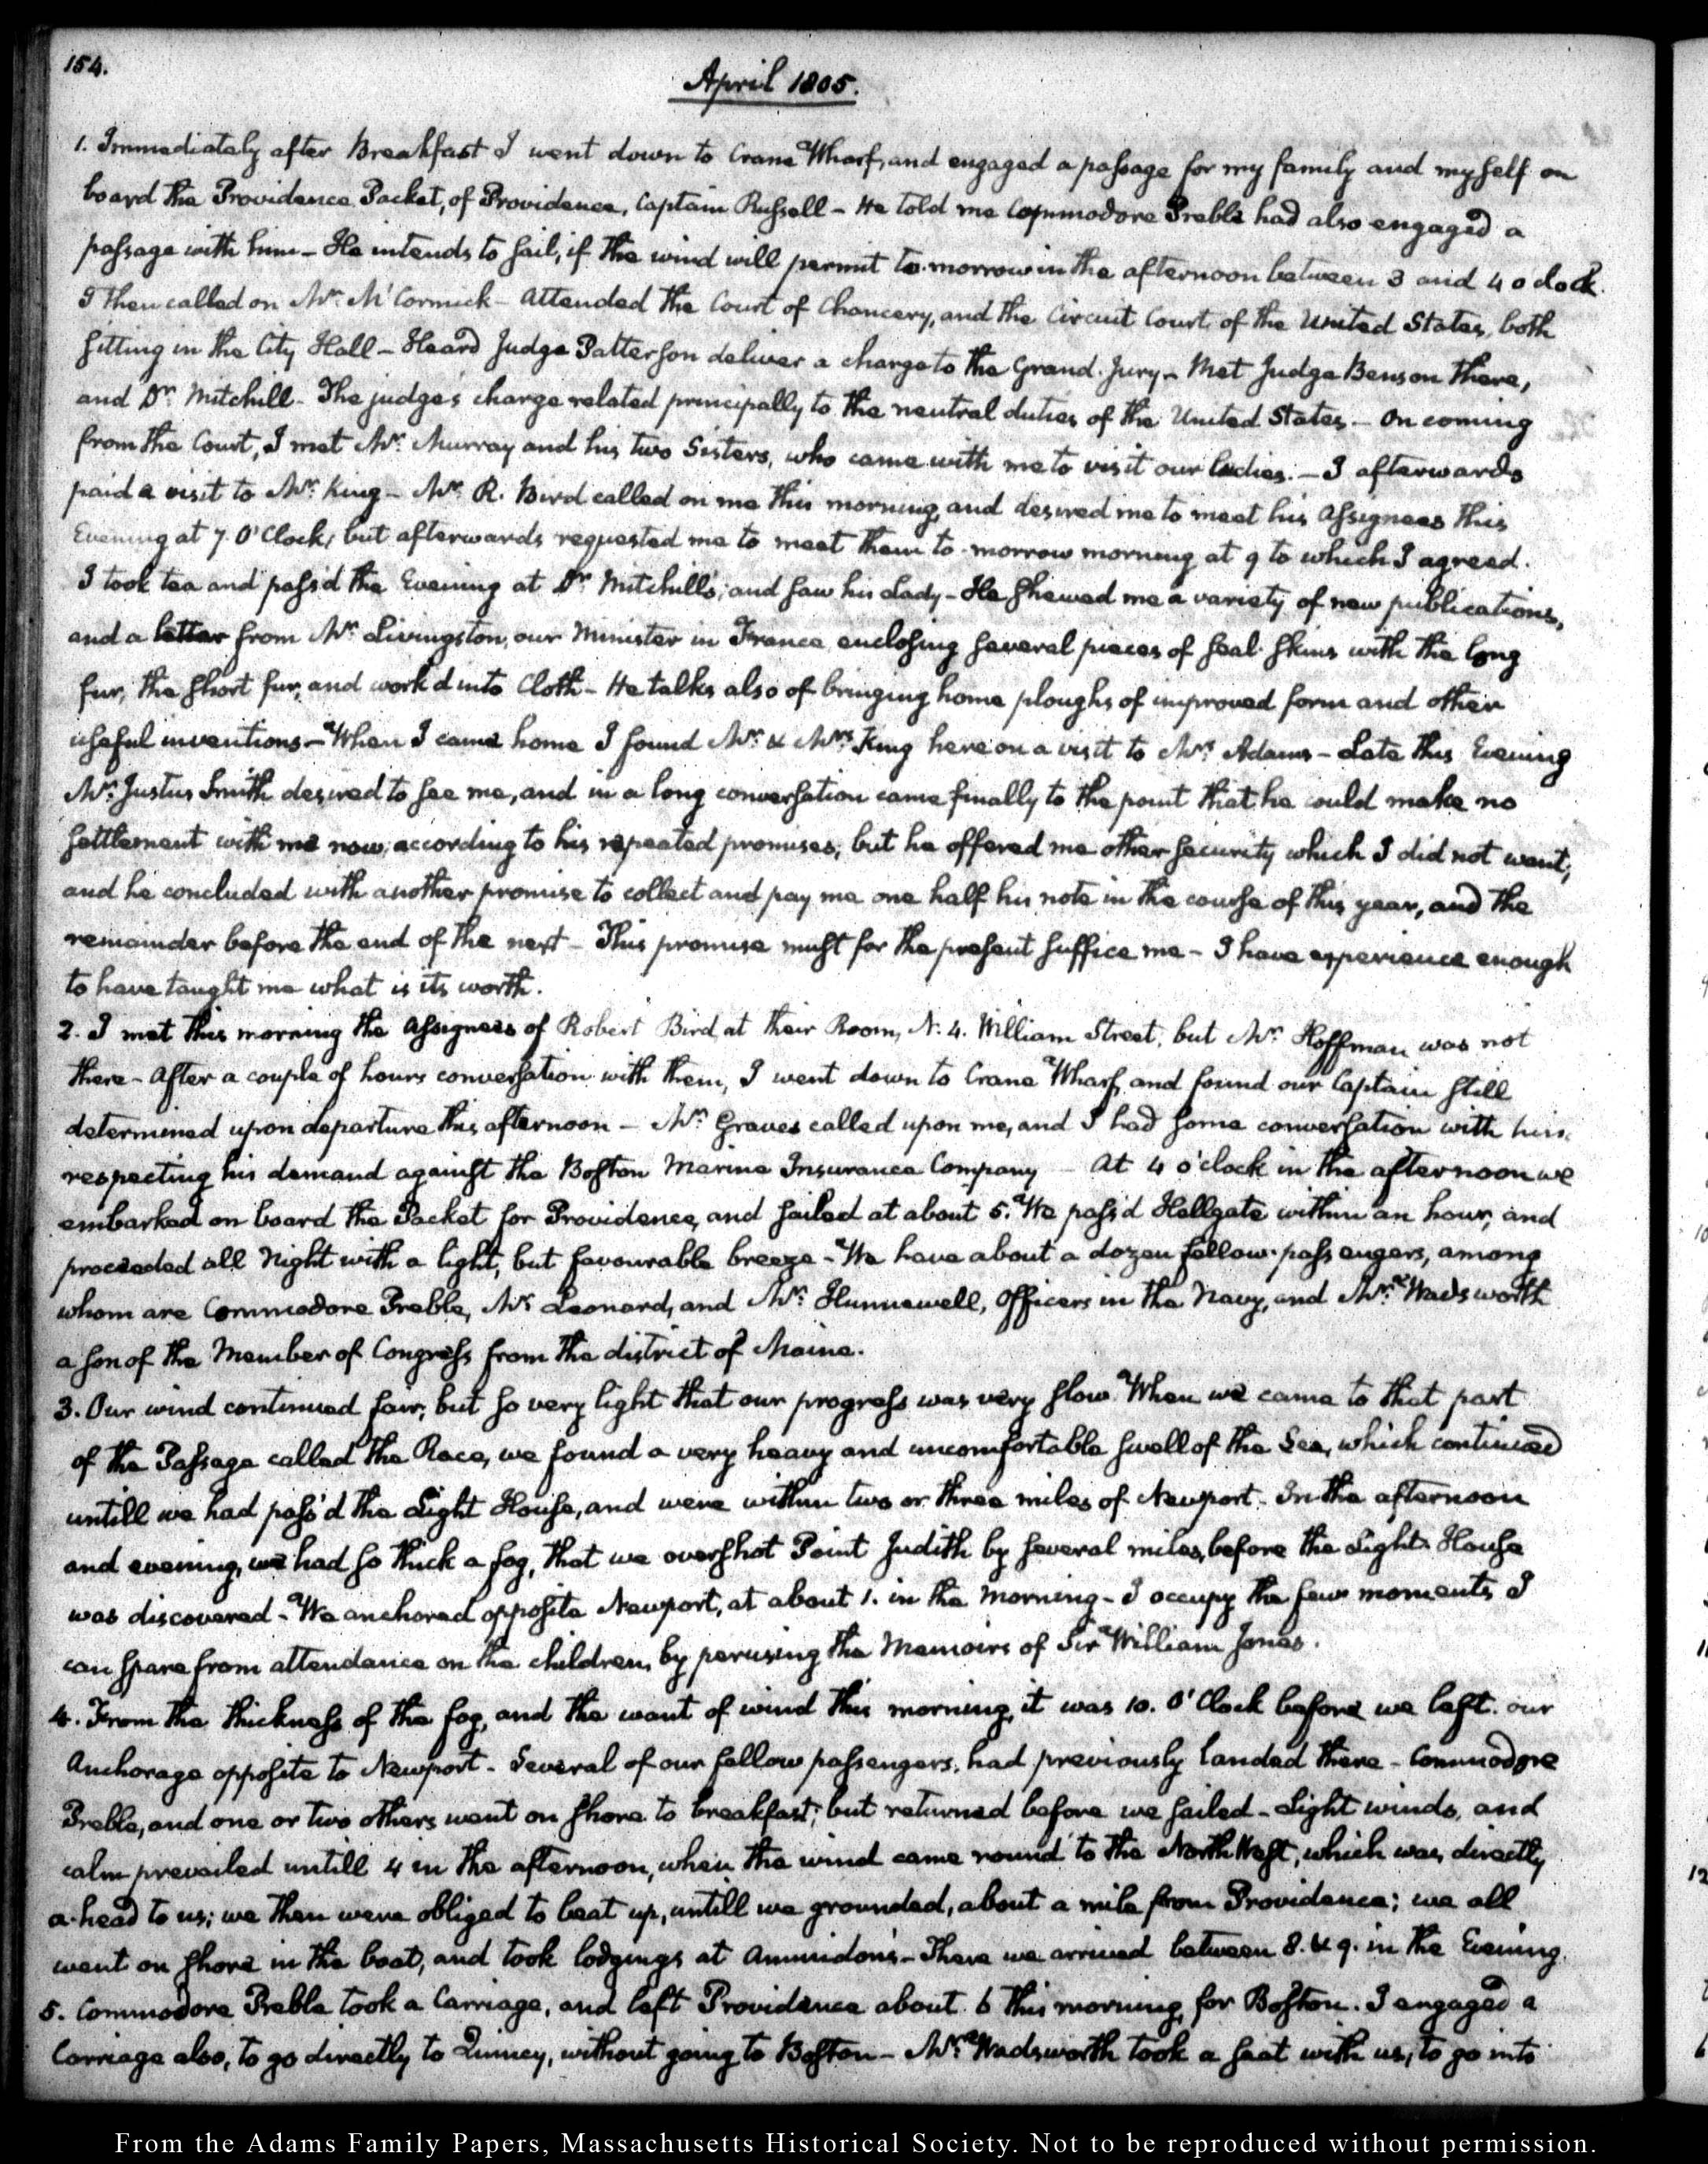 154.
April 1805.
1. Immediately after Breakfast I went down to Crane Wharf, and engaged a passage for my family and myself on
board the Providence Packet, of Providence, Captain Russell - He told me Commodore Preble had also engaged a
passage with him - He intends to sail, if the wind will permit to-morrow in the afternoon between 3 and 4 o clock.
I then called on Mr. McCormick - Attended the Court of Chancery, and the Circuit Court of the United States, both
sitting in the City Hall - Heard Judge Patterson deliver a charge to the Grand-Jury - Met Judge Benson there,
and Dr. Mitchill - The judge's charge related principally to the neutral duties of the United States - On coming
from the Court, I met Mr. Murray and his two Sisters, who came with me to visit our ladies. - I afterwards
paid a visit to Mr. King - Mr. R. Bird called on me this morning, and desired me to meet his Assignees this
Evening at 7. O'Clock, but afterwards requested me to meet them to-morrow morning at 9 to which I agreed.
I took tea and pass'd the Evening at Dr. Mitchill's, and saw his Lady - He shewed me a variety of new publications,
and a letter from Mr. Livingston, our Minister in France enclosing several pieces of seal-skins with the long
fur, the short fur, and work'd into Cloth - He talks also of bringing home ploughs of improved form and other
useful inventions - When I came home I found Mr. & Mrs. King here on a visit to Mrs. Adams - Late this Evening
Mr. Justus Smith desired to see me, and in a long conversation came finally to the point that he could make no
settlement with me now, according to his repeated promises, but he offered me other security which I did not want,
and he concluded with another promise to collect and pay me one half his note in the course of this year, and the
remainder before the end of the next - This promise must for the present suffice me - I have experience enough
to have taught me what is its worth.
2. I met this morning the Assignees of Robert Bird, at their Room, N. 4. William Street, but Mr. Hoffman was not
there - After a couple of hours conversation with them, I went down to Crane Wharf, and found our Captain still
determined upon departure this afternoon - Mr. Graves called upon me, and I had some conversation with him
respecting his demand against the Boston Marine Insurance Company - At 4 o'clock in the afternoon we
embarked on board the Packet for Providence, and sailed at about 5. We pass'd Hellgate within an hour, and
proceeded all Night with a light, but favourable breeze - We have about a dozen fellow-passengers, among
whom are Commodore Preble, Mr. Leonard, and Mr. Hunnewell, Officers in the Navy, and Mr. Wadsworth
a son of the Member of Congress from the district of Maine.
3. Our wind continued fair, but so very light that our progress was very slow. When we came to that part
of the Passage called the Race, we found a very heavy and uncomfortable swell of the Sea, which continued
untill we had pass'd the Light House, and were within two or three miles of Newport. In the afternoon
and evening, we had so thick a fog, that we overshot Point Judith by several miles, before the Light-House
was discovered - We anchored opposite Newport, at about 1. in the Morning - I occupy the few moments I
can spare from attendance on the children, by perusing the Memoirs of Sir William Jones.
4. From the thickness of the fog, and the want of wind this morning, it was 10. O'Clock before we left our
Anchorage opposite to Newport - Several of our fellow passengers, had previously landed there - Commodore
Preble, and one or two others went on shore to breakfast; but returned before we sailed - Light winds, and
calm prevailed untill 4 in the afternoon, when the wind came round to the North West, which was directly
a-head to us; we then were obliged to beat up, untill we grounded, about a mile from Providence; we all
went on shore in the boat, and took lodgings at Ammidon's - There we arrived between 8. & 9. in the Evening.
5. Commodore Preble took a Carriage, and left Providence about 6 this morning, for Boston. I engaged a
Carriage also, to go directly to Quincy, without going to Boston - Mr. Wadsworth took a seat with us, to go into
From the Adams Family Papers, Massachusetts Historical Society. Not to be reproduced without permission.